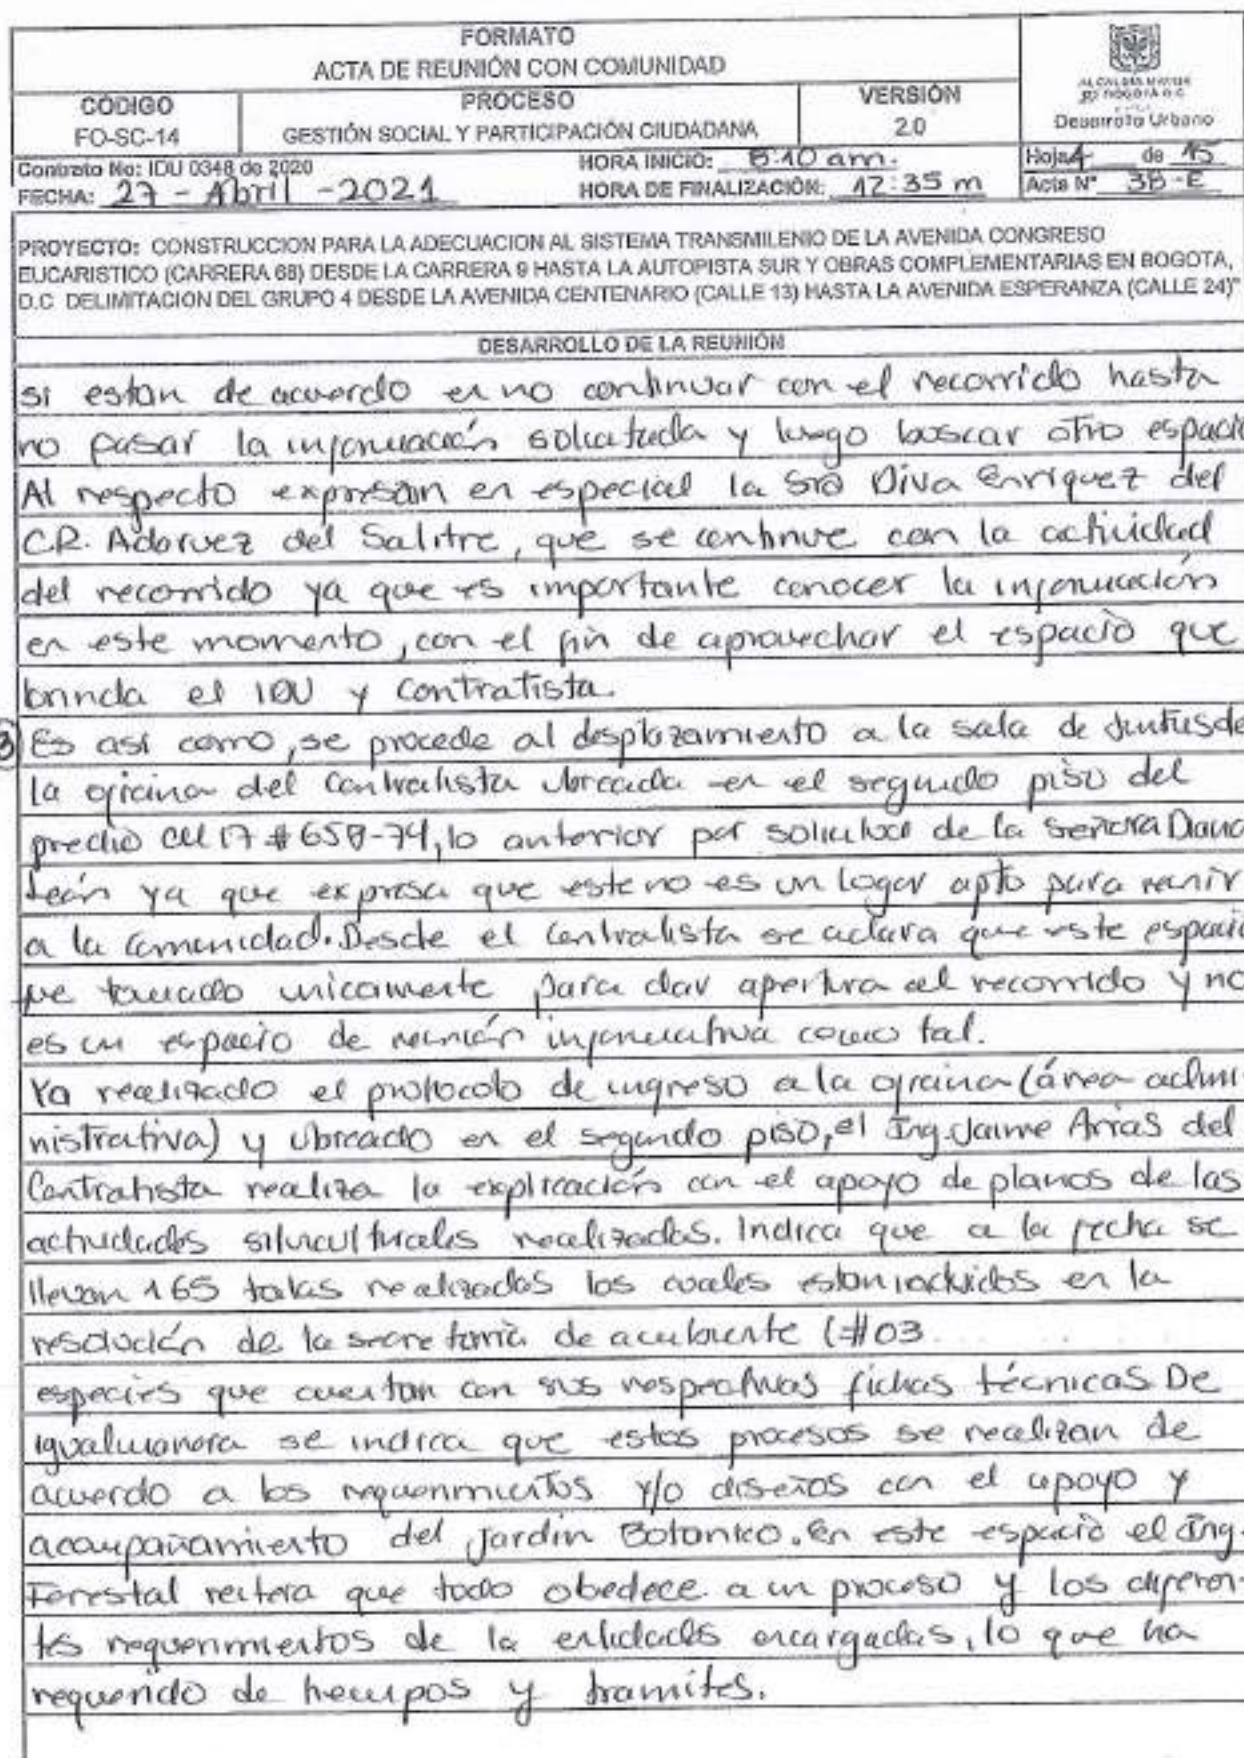 FORMATO
ACTA DE REUNIÓN CON COMUNIDAD
CÓDIGO
FO-SC-14
PROCESO
GESTIÓN SOCIAL Y PARTICIPACIÓN CIUDADANA
VERSIÓN
2.0
ALCALDÍA MAYOR
DE BOGOTÁ D.C.
Desarrollo Urbano
Contrato No: IDU 0348 de 2020
FECHA: 27 - Abril - 2021
HORA INICIO: 8:10 am.
HORA DE FINALIZACIÓN: 12:35 m
Hoja 4 de 15
Acta N° 38-E
PROYECTO: CONSTRUCCION PARA LA ADECUACION AL SISTEMA TRANSMILENIO DE LA AVENIDA CONGRESO
EUCARISTICO (CARRERA 68) DESDE LA CARRERA 9 HASTA LA AUTOPISTA SUR Y OBRAS COMPLEMENTARIAS EN BOGOTA,
D.C DELIMITACION DEL GRUPO 4 DESDE LA AVENIDA CENTENARIO (CALLE 13) HASTA LA AVENIDA ESPERANZA (CALLE 24)"
DESARROLLO DE LA REUNIÓN
si estan de acuerdo en no continuar con el recorrido hasta
no pasar la información solicitada y luego buscar otro espacio
Al respecto expresan en especial la Sra Diva Enriquez del
C.R. Adarvez del Salitre, que se continue con la actividad
del recorrido ya que es importante conocer la información
en este momento, con el fin de aprovechar el espacio que
brinda el IDU y Contratista.
3 Es así como, se procede al desplazamiento a la sala de Juntas de
la oficina del Contratista ubicada en el segundo piso del
predio Cll 17 # 65B-74, lo anterior por solicitud de la Señora Diana
León ya que expresa que este no es un logar apto para reunir
a la comunidad. Desde el Contratista se aclara que este espacio
fue tomado unicamente para dar apertura al recorrido y no
es un espacio de reunión informativa como tal.
Ya realizado el protocolo de ingreso a la oficina (área admi-
nistrativa) y ubicado en el segundo piso, el Ing. Jaime Arias del
Contratista realiza la explicación con el apoyo de planos de las
actividades silviculturales realizadas. Indica que a la fecha se
llevan 165 talas realizadas los cuales estan incluidos en la
resolución de la secretaria de ambiente (#03
especies que cuentan con sus respectivas fichas técnicas. De
igual manera se indica que estos procesos se realizan de
acuerdo a los requerimientos y/o diseños con el apoyo y
acompañamiento del Jardin Botanico. En este espacio el Ing.
Forrestal reitera que todo obedece a un proceso y los diferen-
tes requerimientos de la entidades encargadas, lo que ha
requerido de tiempos y tramites.